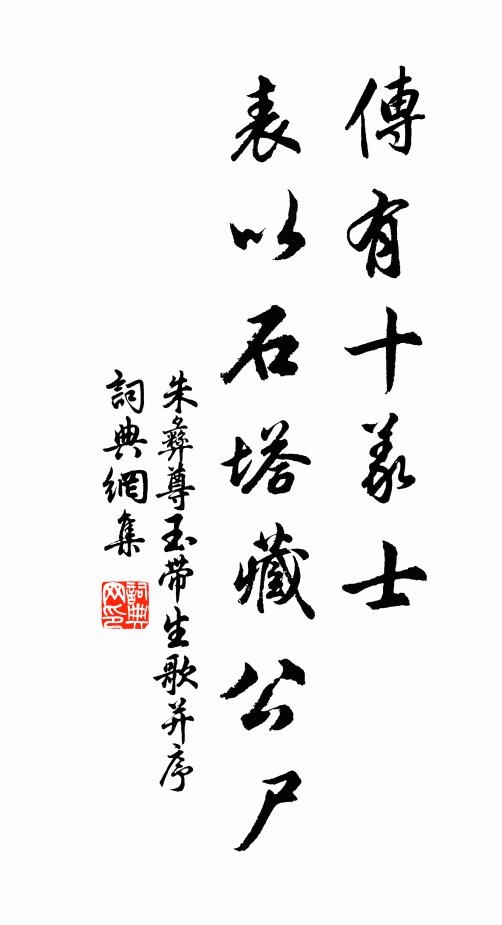 傳有十義士
表以石塔藏公尸
朱彝尊玉带生歌并序
詞典網集
詞典网印